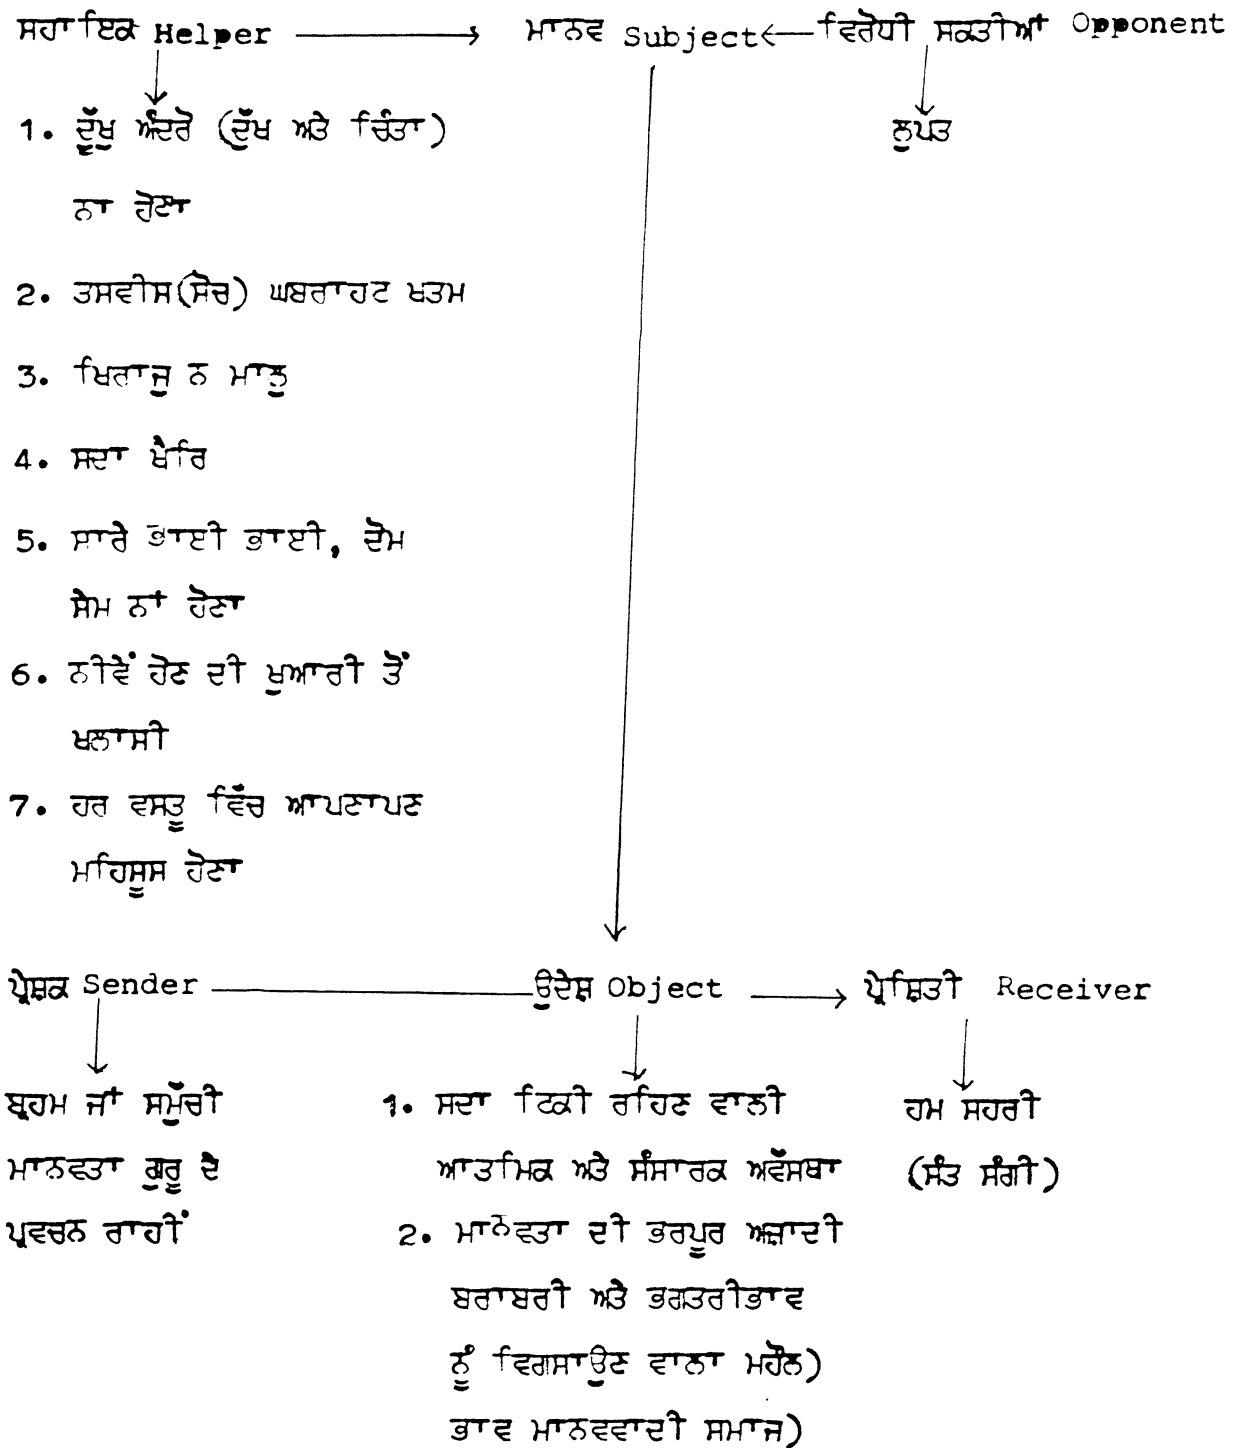 ਸਹਾਇਕ Helper ਮਾਨਵ Subject ਵਿਰੋਧੀ ਸਕਤੀਆਂ Opponent
1. ਦੁੱਖੁ ਅੰਦਰੋ (ਦੁੱਖ ਅਤੇ ਚਿੰਤਾ) ਲੁਪਤ
ਨਾ ਹੋਣਾ
2. ਤਸਵੀਸ(ਸੋਚ) ਘਬਰਾਹਟ ਖਤਮ
3. ਖਿਰਾਜੁ ਨ ਮਾਲੁ
4. ਸਦਾ ਖੈਰਿ
5. ਸਾਰੇ ਭਾਈ ਭਾਈ, ਦੋਮ
ਸੇਮ ਨਾਂ ਹੋਣਾ
6. ਨੀਵੇਂ ਹੋਣ ਦੀ ਖੁਆਰੀ ਤੋਂ
ਖਲਾਸੀ
7. ਹਰ ਵਸਤੂ ਵਿੱਚ ਆਪਣਾਪਣ
ਮਹਿਸੂਸ ਹੋਣਾ
ਪ੍ਰੇਸ਼ਕ Sender ਉਦੇਸ਼ Object ਪ੍ਰੇਸ਼ਿਤੀ Receiver
ਬ੍ਰਹਮ ਜਾਂ ਸਮੁੱਚੀ 1. ਸਦਾ ਟਿਕੀ ਰਹਿਣ ਵਾਲੀ ਹਮ ਸਹਰੀ
ਮਾਨਵਤਾ ਗੁਰੂ ਦੇ ਆਤਮਿਕ ਅਤੇ ਸੰਸਾਰਕ ਅਵੱਸਥਾ (ਸੰਤ ਸੰਗੀ)
ਪ੍ਰਵਚਨ ਰਾਹੀਂ 2. ਮਾਨਵਤਾ ਦੀ ਭਰਪੂਰ ਅਜ਼ਾਦੀ
ਬਰਾਬਰੀ ਅਤੇ ਭਰਾਤਰੀਭਾਵ
ਨੂੰ ਵਿਗਸਾਉਣ ਵਾਲਾ ਮਹੌਲ)
ਭਾਵ ਮਾਨਵਵਾਦੀ ਸਮਾਜ)